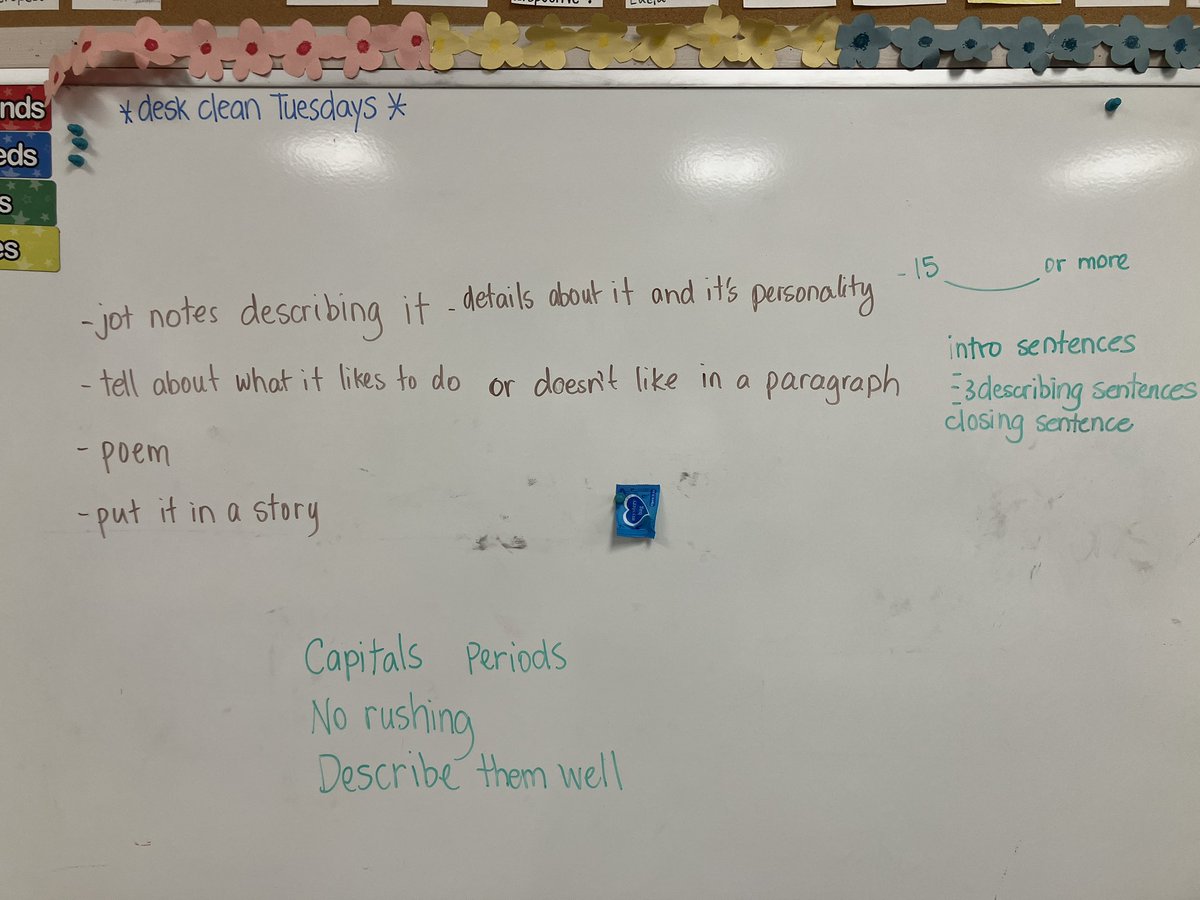 *desk clean Tuesdays*
nds
eds
s
es
-jot notes describing it - details about it and it's personality - 15 ______ or more
- tell about what it likes to do or doesn't like in a paragraph
- poem
- put it in a story
intro sentences
-3 describing sentences
closing sentence
Capitals Periods
No rushing
Describe them well